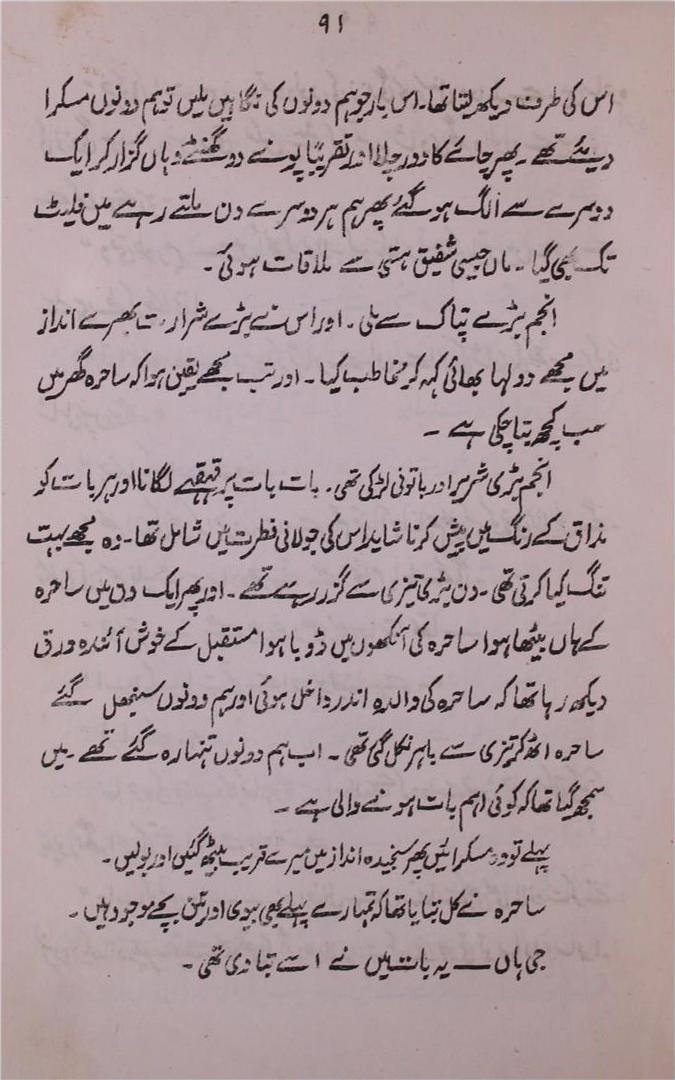 ۹۱
اس کی طرف دیکھ لیتا تھا۔ اس بار جو ہم دونوں کی نگاہیں ملیں تو ہم دونوں مسکرا
دیئے تھے ۔ پھر چائے کا دور چلا اور تقریباً پونے دو گھنٹے وہاں گزار کر ایک
دوسرے سے الگ ہو گئے پھر ہم ہر دوسرے دن ملتے رہے میں فلیٹ
تک بھی گیا ۔ ماں جیسی شفیق ہستی سے ملاقات ہوئی ۔
انجم بڑے تپاک سے ملی ۔ اور اس نے بڑے شرارت بھرے انداز
میں مجھے دولہا بھائی کہہ کر مخاطب کیا ۔ اور تب مجھے یقین ہوا کہ ساحرہ گھر میں
سب کچھ بتا چکی ہے ۔
انجم بڑی شریر اور باتونی لڑکی تھی ۔ بات بات پر قہقہے لگانا اور ہر بات کو
مذاق کے رنگ میں پیش کرنا شاید اس کی جولانی فطرت میں شامل تھا ۔ وہ مجھے بہت
تنگ کیا کرتی تھی ۔ دن بڑی تیزی سے گزر رہے تھے ۔ اور پھر ایک دن میں ساحرہ
کے ہاں بیٹھا ہوا ساحرہ کی آنکھوں میں ڈوبا ہوا مستقبل کے خوش آئندہ ورق
دیکھ رہا تھا کہ ساحرہ کی والدہ اندر داخل ہوئی اور ہم دونوں سنبھل گئے
ساحرہ اٹھ کر تیزی سے باہر نکل گئی تھی ۔ اب ہم دونوں تنہا رہ گئے تھے میں
سمجھ گیا تھا کہ کوئی اہم بات ہونے والی ہے ۔
پہلے تو وہ مسکرائیں پھر سنجیدہ انداز میں میرے قریب بیٹھ گئیں اور بولیں ۔
ساحرہ نے کل بتایا تھا کہ تمہارے پہلے بھی بیوی اور تین بچے موجود ہیں ۔
جی ہاں — یہ بات میں نے اسے بتا دی تھی ۔